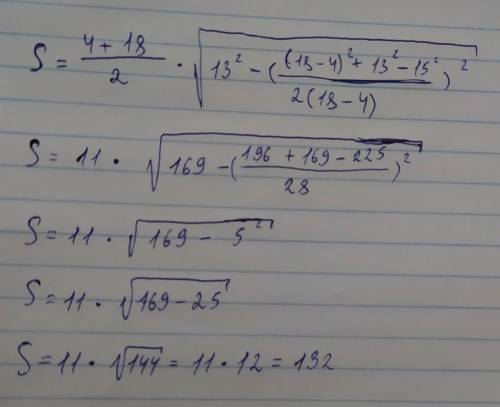 S = (4 + 18)/2 · √(13² - (((18-4)² + 13² - 15²)/(2(18-4)))²)
S = 11 · √(169 - ((196 + 169 - 225)/28)²)
S = 11 · √(169 - 5²)
S = 11 · √(169 - 25)
S = 11 · √144 = 11 · 12 = 132